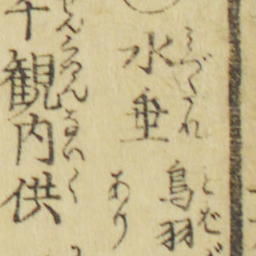 水垂 鳥羽
みづたれ とば
あり
千観内供
せんくわんないく